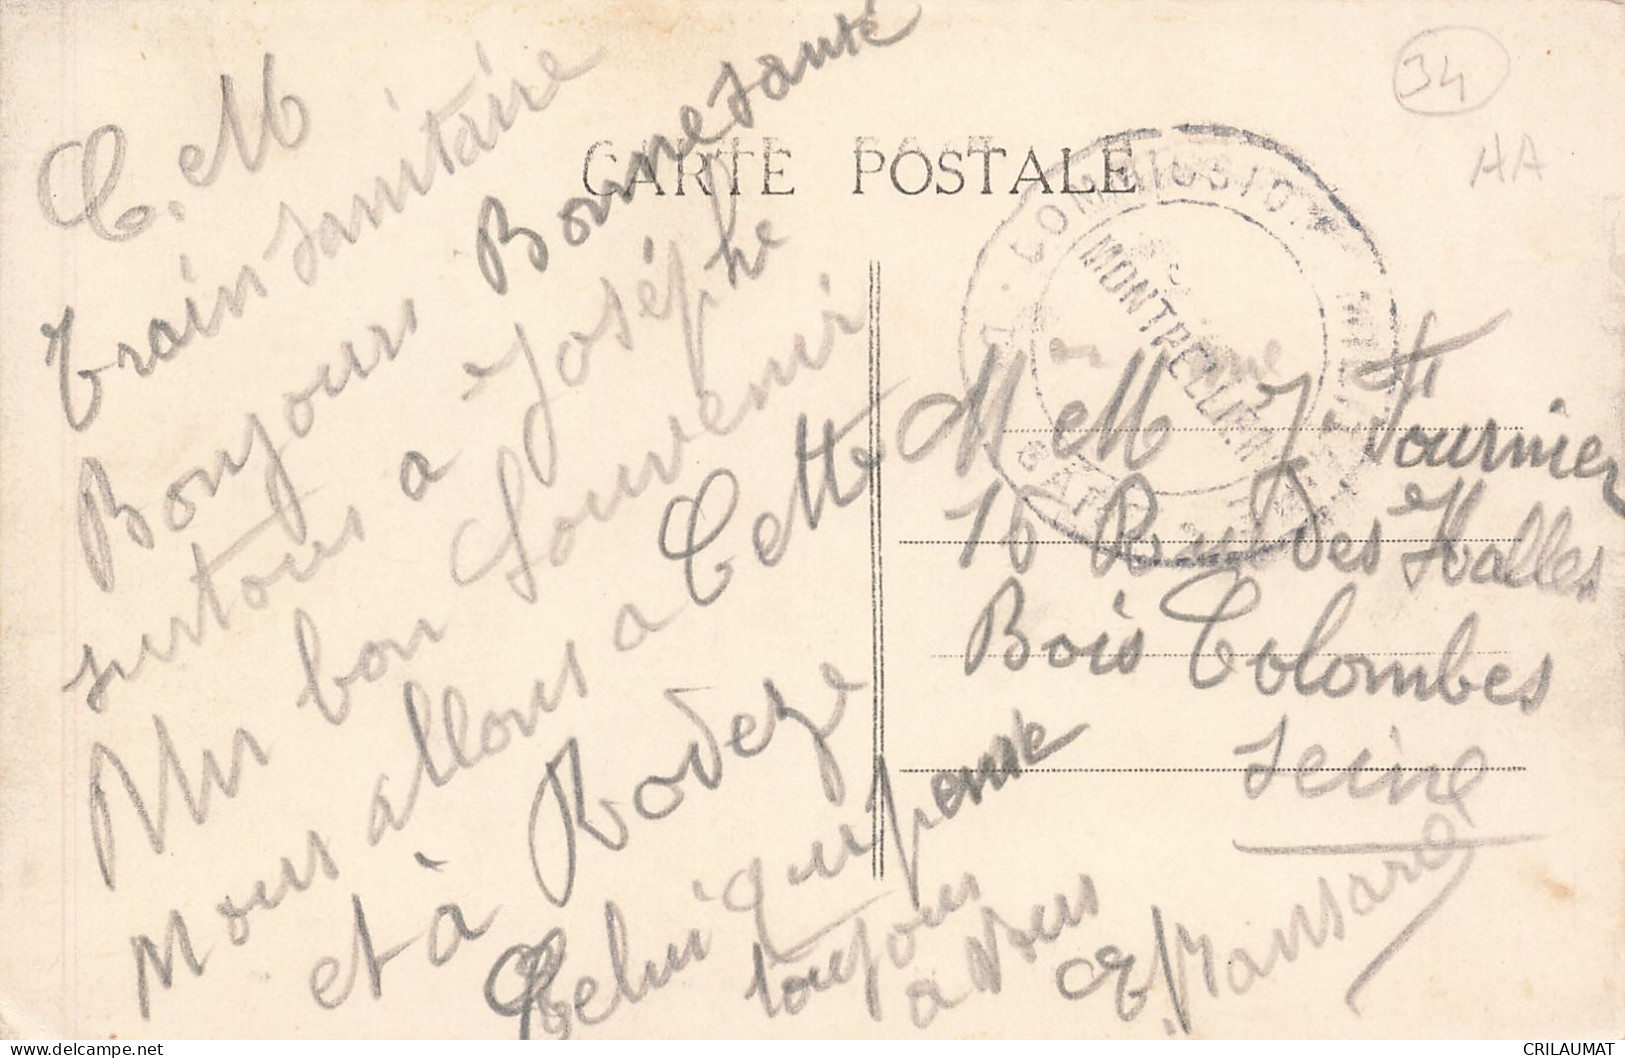 34
AA
CARTE POSTALE
C. M
train sanitaire
Bonjours Bonne santé
surtous a Joséphe
Un bon Souvenir
Nous allons a Cette
et à Rodeze
Celui qui pense
toujours
a Vous
E. Mansard
COMMISSION MILITAIRE
MONTPELLIER
GARE
M M J Fournier
16 Rue des Halles
Bois Colombes
Seine
CRILAUMAT